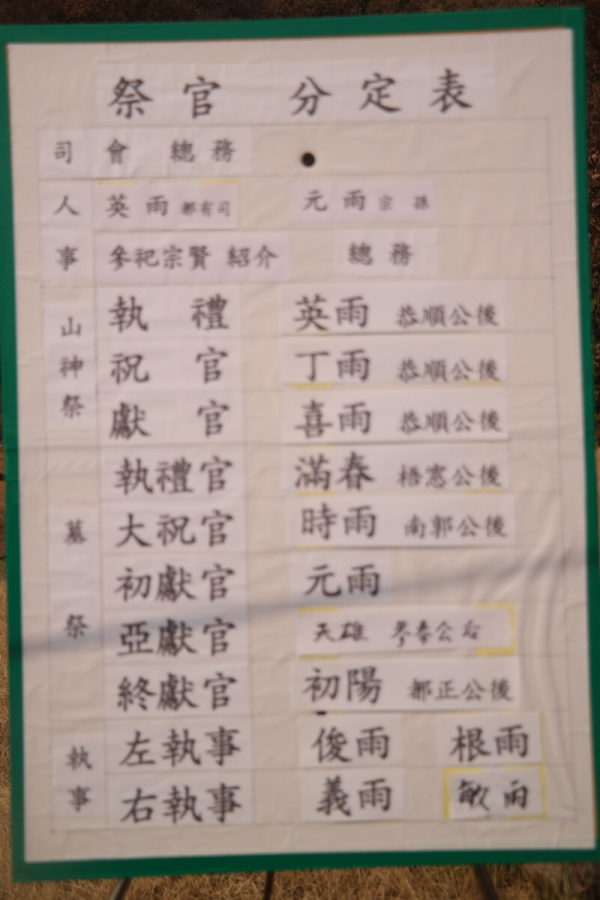 祭官 分定表
司會 總務
人 英雨 都有司 元雨 宗孫
事 參祀宗賢 紹介 總務
山神祭 執禮 英雨 恭順公後
祝官 丁雨 恭順公後
獻官 喜雨 恭順公後
墓祭 執禮官 滿春 梧窓公後
大祝官 時雨 南郭公後
初獻官 元雨
亞獻官 天雄 公后
終獻官 初陽 都正公後
執事 左執事 俊雨 根雨
右執事 義雨 敏雨